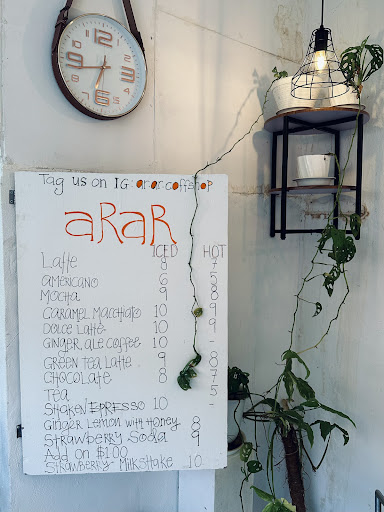 12
1
2
3
4
5
6
7
8
9
10
11
Tag us on IG: arar.coffshop
aRaR
ICED HOT
Latte 8 7
AMERICANO 6 5
Mocha 9 8
CARAMEL Macchiato 10 9
Dolce Latte 10 9
Ginger ale coffee 10 -
GREEN Tea Latte 9 8
CHOCOLate 8 7
Tea 5
SHAKEN ESPRESSO 10 -
Ginger Lemon with Honey 8
Strawberry Soda 9
Add on $100
Strawberry Milkshake 10